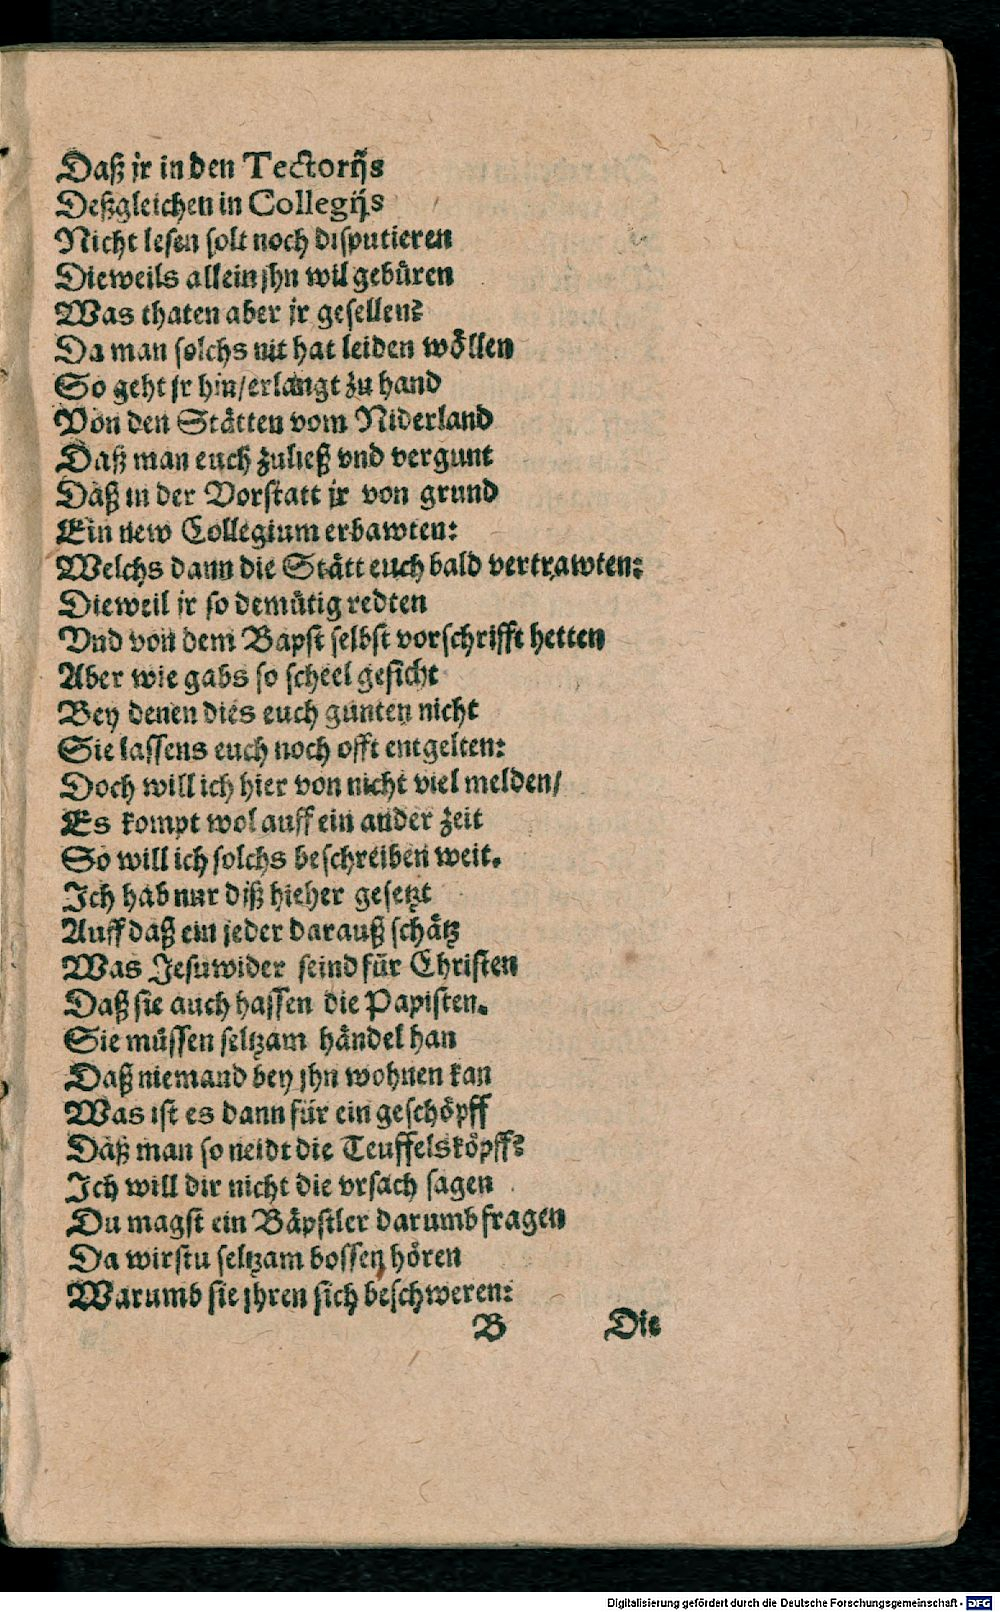 Daß jr in den Tectorijs
Deßgleichen in Collegijs
Nicht lesen solt noch disputieren
Dieweils allein jhn wil gebüren
Was thaten aber jr gesellen?
Da man solchs nit hat leiden wöllen
So geht jr hin/erlangt zu hand
Von den Stätten vom Niderland
Daß man euch zuließ vnd vergunt
Daß in der Vorstatt jr von grund
Ein new Collegium erbawten:
Welchs dann die Stätt euch bald vertrawten:
Dieweil jr so demütig redten
Vnd von dem Bapst selbst vorschrifft hetten
Aber wie gabs so scheel gesicht
Bey denen dies euch günten nicht
Sie lassens euch noch offt entgelten:
Doch will ich hier von nicht viel melden/
Es kompt wol auff ein ander zeit
So will ich solchs beschreiben weit.
Ich hab nur diß hieher gesetzt
Auff daß ein jeder darauß schätz
Was Jesuwider seind für Christen
Daß sie auch hassen die Papisten.
Sie müssen seltzam händel han
Daß niemand bey jhn wohnen kan
Was ist es dann für ein geschöpff
Daß man so neidt die Teuffelsköpff?
Ich will dir nicht die vrsach sagen
Du magst ein Bäpstler darumb fragen
Da wirstu seltzam bossen hören
Warumb sie jhren sich beschweren:
B Die
Digitalisierung gefördert durch die Deutsche Forschungsgemeinschaft - DFG